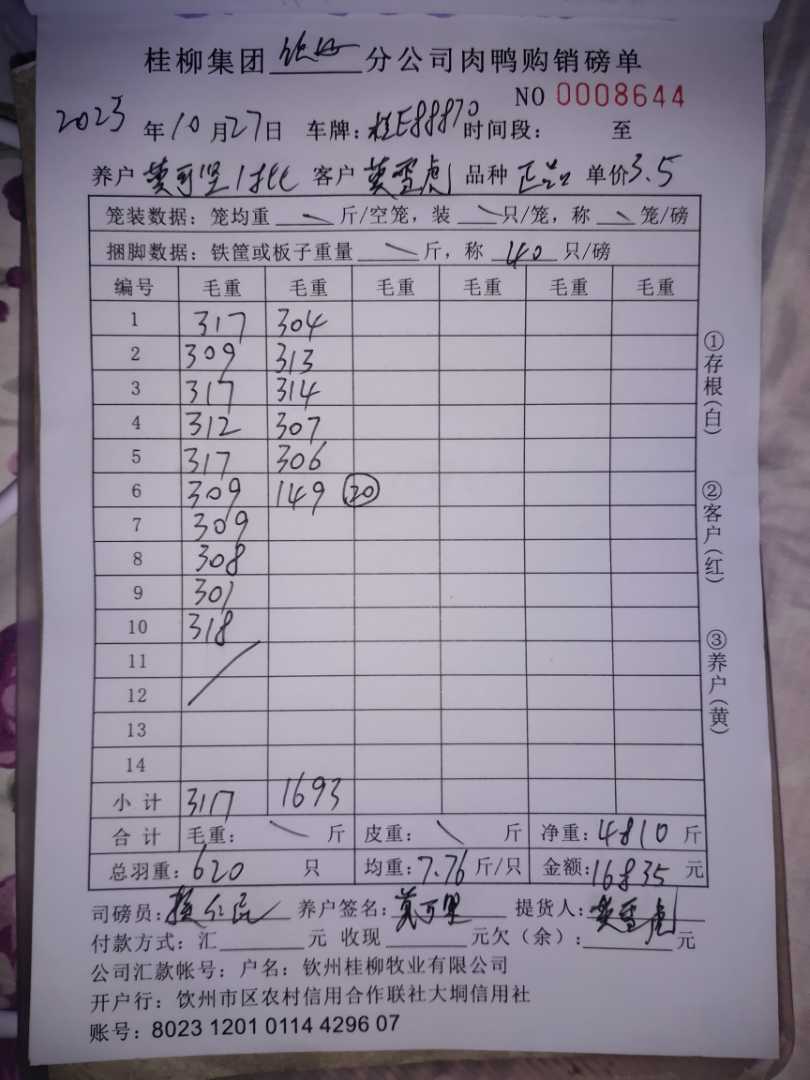 桂柳集团 钦州 分公司肉鸭购销磅单
NO 0008644
2023 年 10 月 27 日 车牌：桂E88870 时间段： 至
养户 莫可坚 1批 客户 莫雪虎 品种 正品 单价 3.5
笼装数据：笼均重 斤/空笼，装 只/笼，称 笼/磅
捆脚数据：铁筐或板子重量 斤，称 40 只/磅
编号 毛重 毛重 毛重 毛重 毛重 毛重
1 317 304
2 309 313
3 317 314
4 312 307
5 317 306
6 309 149 20
7 309
8 308
9 301
10 318
11
12
13
14
小计 3117 1693
合计 毛重： 斤 皮重： 斤 净重：4810 斤
总羽重：620 只 均重：7.76 斤/只 金额：16835 元
司磅员： 养户签名：莫可坚 提货人：莫雪虎
付款方式：汇 元 收现 元欠（余）： 元
公司汇款帐号：户名：钦州桂柳牧业有限公司
开户行：饮州市区农村信用合作联社大垌信用社
账号：8023 1201 0114 4296 07
①存根（白）
②客户（红）
③养户（黄）